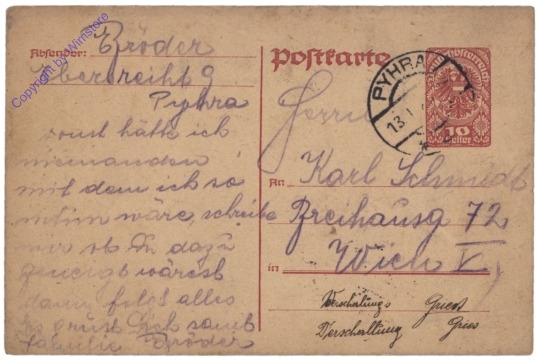 Absender: Bröder
Pyhra
sonst hätte ich
niemanden
mit dem ich so
intim wäre, schreibe
mir ob Du dazu
geneigt wärest
dann folgt alles
Es grüßt Dich samt
Familie Bröder
Copyright by Winstore
Postkarte
Deutschösterreich
10
Heller
PYHRA
13.
Herrn
An Karl Schmidt
72
in Wien V.
Verschalung